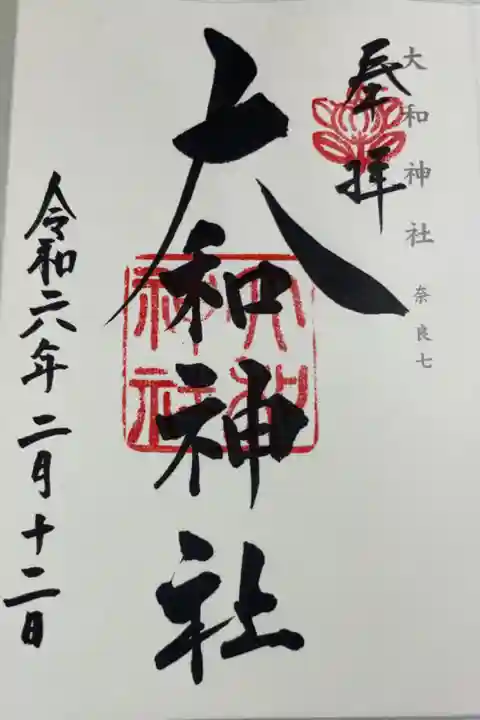 大和神社 奈良七
奉拝
大和神社
大和神社
令和六年二月十二日